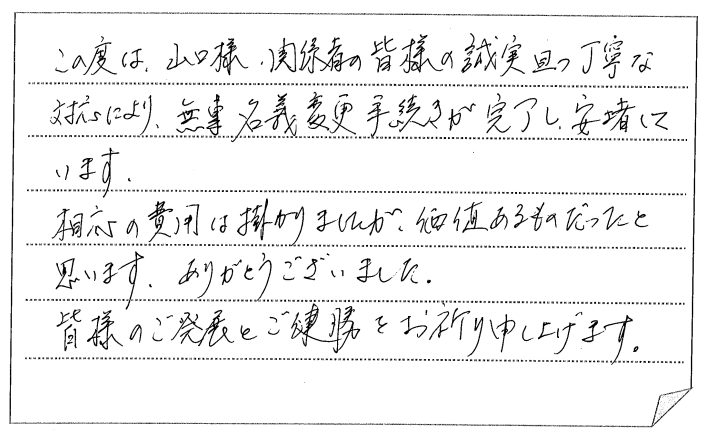 この度は、山口様、関係者の皆様の誠実且つ丁寧な
対応により、無事名義変更手続きが完了し、安堵して
います。
相応の費用は掛かりましたが、価値あるものだったと
思います。ありがとうございました。
皆様のご発展とご健勝をお祈り申し上げます。